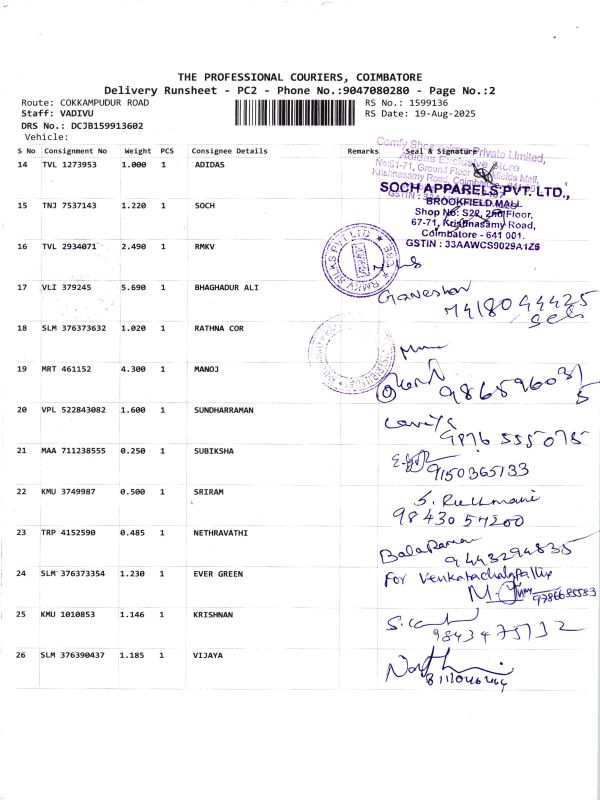 THE PROFESSIONAL COURIERS, COIMBATORE
Delivery Runsheet - PC2 - Phone No.:9047080280 - Page No.:2
Route: COKKAMPUDUR ROAD
RS No.: 1599136
Staff: VADIVU
RS Date: 19-Aug-2025
DRS No.: DCJB159913602
Vehicle:
S No Consignment No Weight PCS Consignee Details Remarks Seal & Signature
14 TVL 1273953 1.000 1 ADIDAS
Private Limited,
Adidas Exclusive Store
SOCH APPARELS PVT. LTD.,
BROOKFIELD MALL
Shop No: S22, 2nd Floor,
67-71, Krishnasamy Road,
Coimbatore - 641 001.
GSTIN : 33AAWCS9029A1Z6
15 TNJ 7537143 1.220 1 SOCH
16 TVL 2934071 2.490 1 RMKV
RMKV SILKS PVT LTD
17 VLI 379245 5.690 1 BHAGHADUR ALI
Ganeshan
18 SLM 376373632 1.020 1 RATHNA COR
19 MRT 461152 4.300 1 MANOJ
20 VPL 522843082 1.600 1 SUNDHARRAMAN
9876 555075
21 MAA 711238555 0.250 1 SUBIKSHA
9150365133
22 KMU 3749987 0.500 1 SRIRAM
S. Rukmani
98430 57200
23 TRP 4152590 0.485 1 NETHRAVATHI
BalaRaman
9443294835
24 SLM 376373354 1.230 1 EVER GREEN
For Venkatachalapathy
25 KMU 1010853 1.146 1 KRISHNAN
9843475732
26 SLM 376390437 1.185 1 VIJAYA